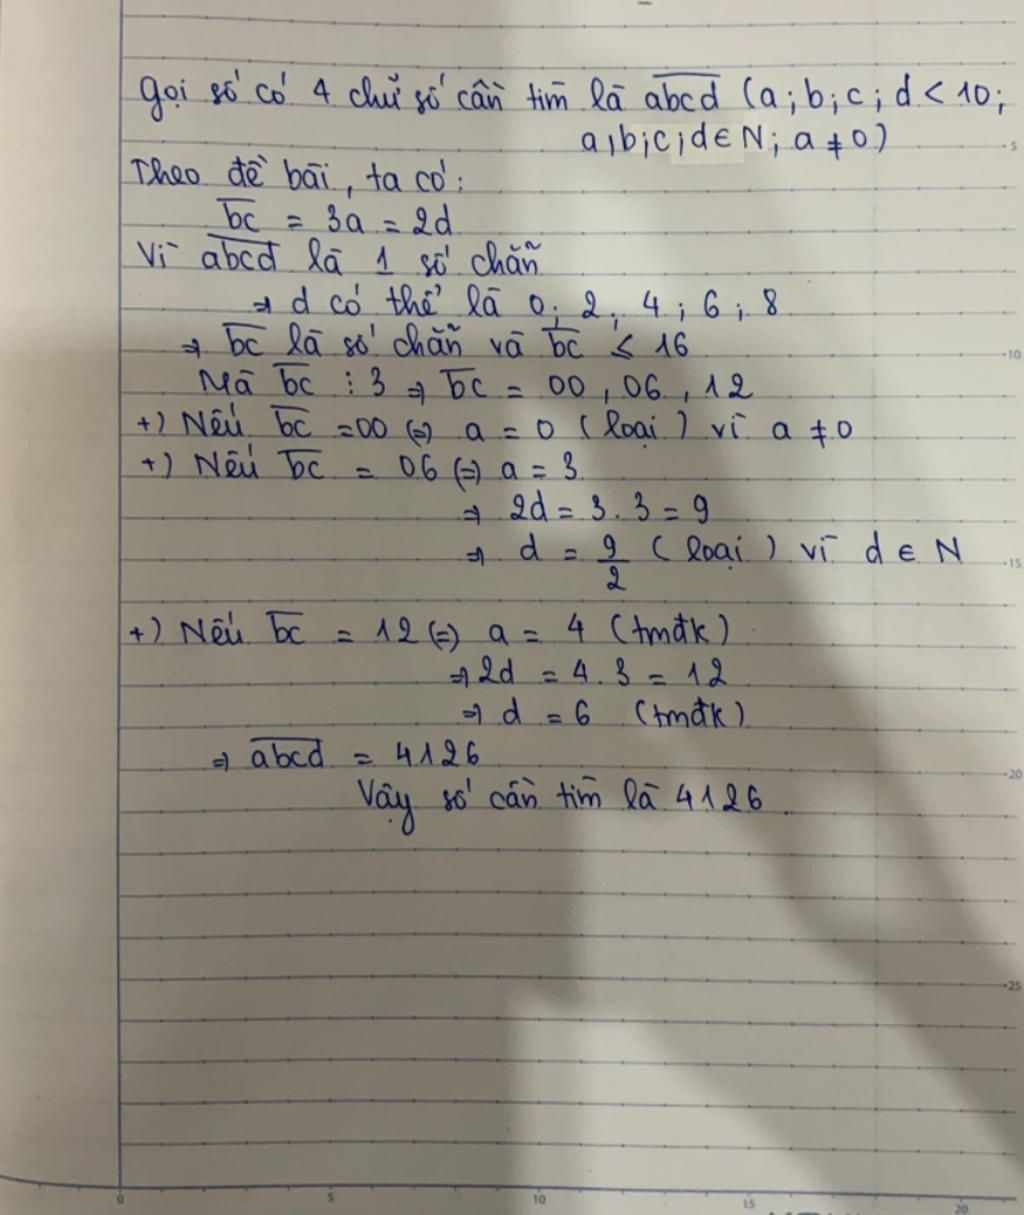 Gọi số có 4 chữ số cần tìm là abcd (a; b; c; d < 10;
a; b; c; d ∈ N; a ≠ 0)
Theo đề bài, ta có:
bc = 3a = 2d
Vì abcd là 1 số chẵn
⇒ d có thể là 0; 2; 4; 6; 8
⇒ bc là số chẵn và bc ≤ 16
Mà bc ⋮ 3 ⇒ bc = 00, 06, 12
+) Nếu bc = 00 (=) a = 0 (loại) vì a ≠ 0
+) Nếu bc = 06 (=) a = 3
⇒ 2d = 3.3 = 9
⇒ d = 9/2 (loại) vì d ∈ N
+) Nếu bc = 12 (=) a = 4 (tmđk)
⇒ 2d = 4.3 = 12
⇒ d = 6 (tmđk)
⇒ abcd = 4126
Vậy số cần tìm là 4126.
5
10
15
20
25
0 5 10 15 20